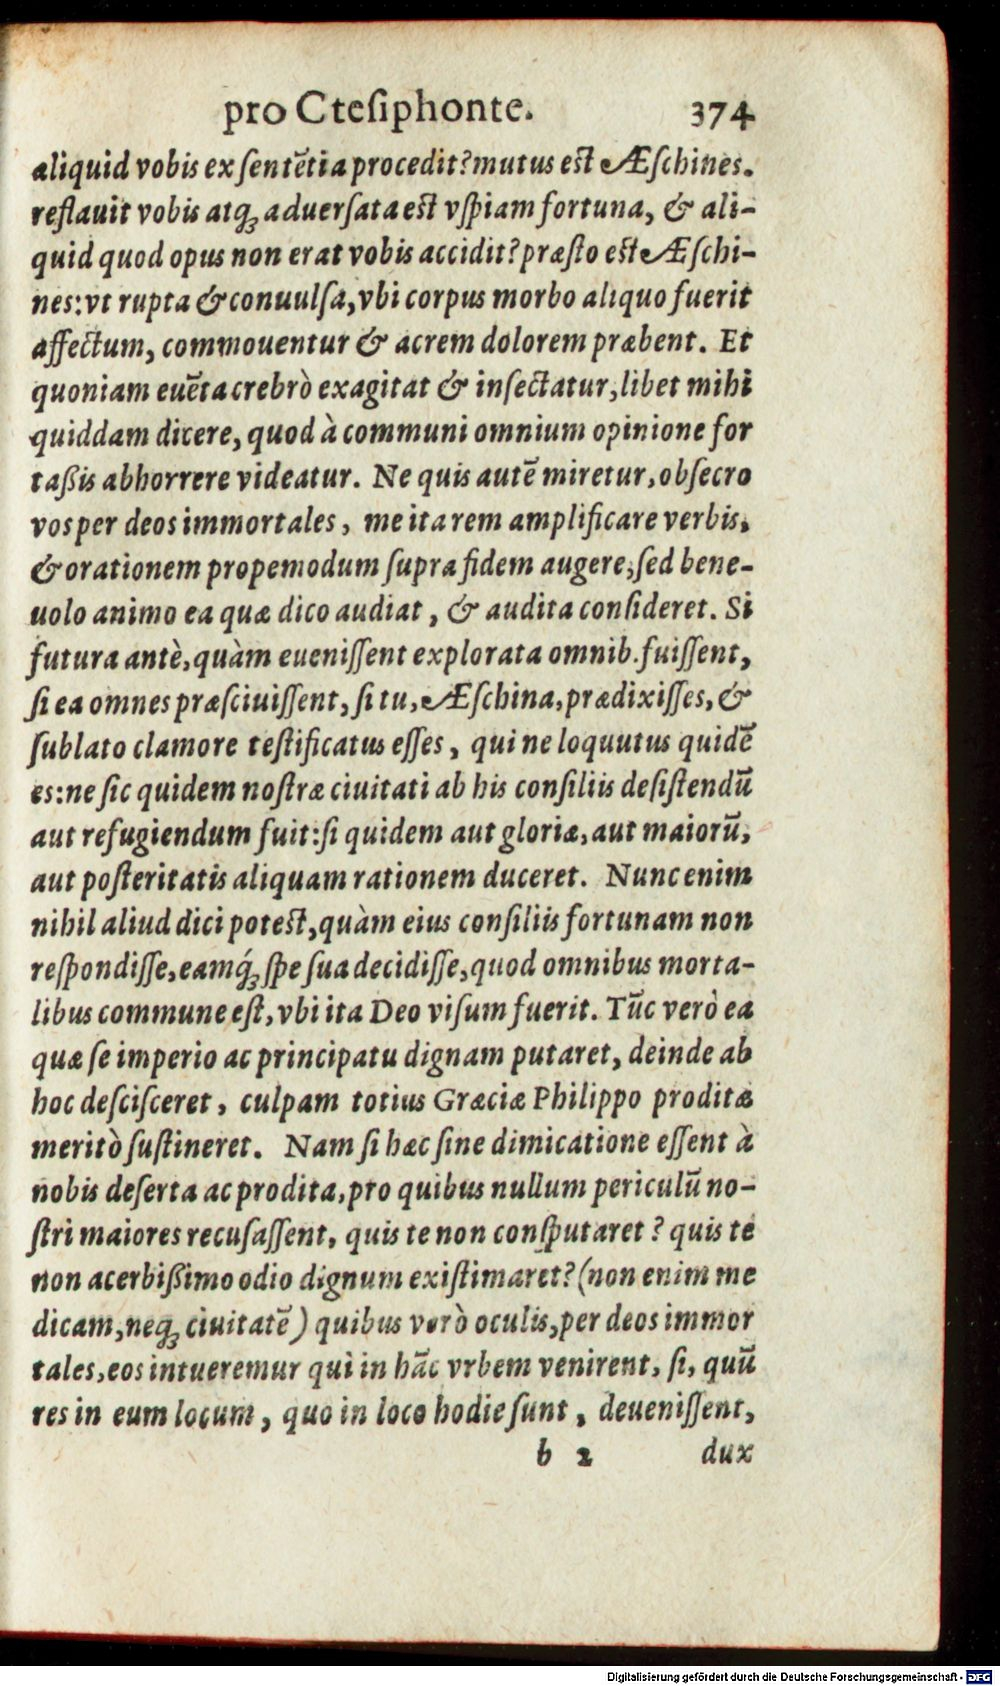 pro Cteſiphonte. 374
aliquid vobis ex ſentẽtia procedit? mutus est Æſchines.
reflauit vobis atq́ꝫ aduerſata est vſpiam fortuna, & ali-
quid quod opus non erat vobis accidit? præſto est Æſchi-
nes: vt rupta & conuulſa, vbi corpus morbo aliquo fuerit
affectum, commouentur & acrem dolorem præbent. Et
quoniam euẽta crebrò exagitat & inſectatur, libet mihi
quiddam dicere, quod à communi omnium opinione for
taßis abhorrere videatur. Ne quis autẽ miretur, obſecro
vos per deos immortales, me ita rem amplificare verbis,
& orationem propemodum ſupra fidem augere, ſed bene-
uolo animo ea quæ dico audiat, & audita conſideret. Si
futura antè, quàm eueniſſent explorata omnib. fuiſſent,
ſi ea omnes præſciuiſſent, ſi tu, Æſchina, prædixiſſes, &
ſublato clamore teſtificatus eſſes, qui ne loquutus quidẽ
es: ne ſic quidem noſtræ ciuitati ab his conſiliis deſiſtendũ
aut refugiendum fuit: ſi quidem aut gloriæ, aut maiorũ,
aut poſteritatis aliquam rationem duceret. Nunc enim
nihil aliud dici potest, quàm eius conſiliis fortunam non
reſpondiſſe, eamq́ꝫ ſpe ſua decidiſſe, quod omnibus morta-
libus commune eſt, vbi ita Deo viſum fuerit. Tũc verò ea
quæ ſe imperio ac principatu dignam putaret, deinde ab
hoc deſciſceret, culpam totius Græciæ Philippo proditæ
meritò ſuſtineret. Nam ſi hæc ſine dimicatione eſſent à
nobis deſerta ac prodita, pro quibus nullum periculũ no-
ſtri maiores recuſaſſent, quis te non conſputaret? quis te
non acerbißimo odio dignum exiſtimaret? (non enim me
dicam, neqꝫ ciuitatẽ) quibus verò oculis, per deos immor
tales, eos intueremur qui in hãc vrbem venirent, ſi, quũ
res in eum locum, quo in loco hodie ſunt, deueniſſent,
b 2 dux
Digitalisierung gefördert durch die Deutsche Forschungsgemeinschaft - DFG